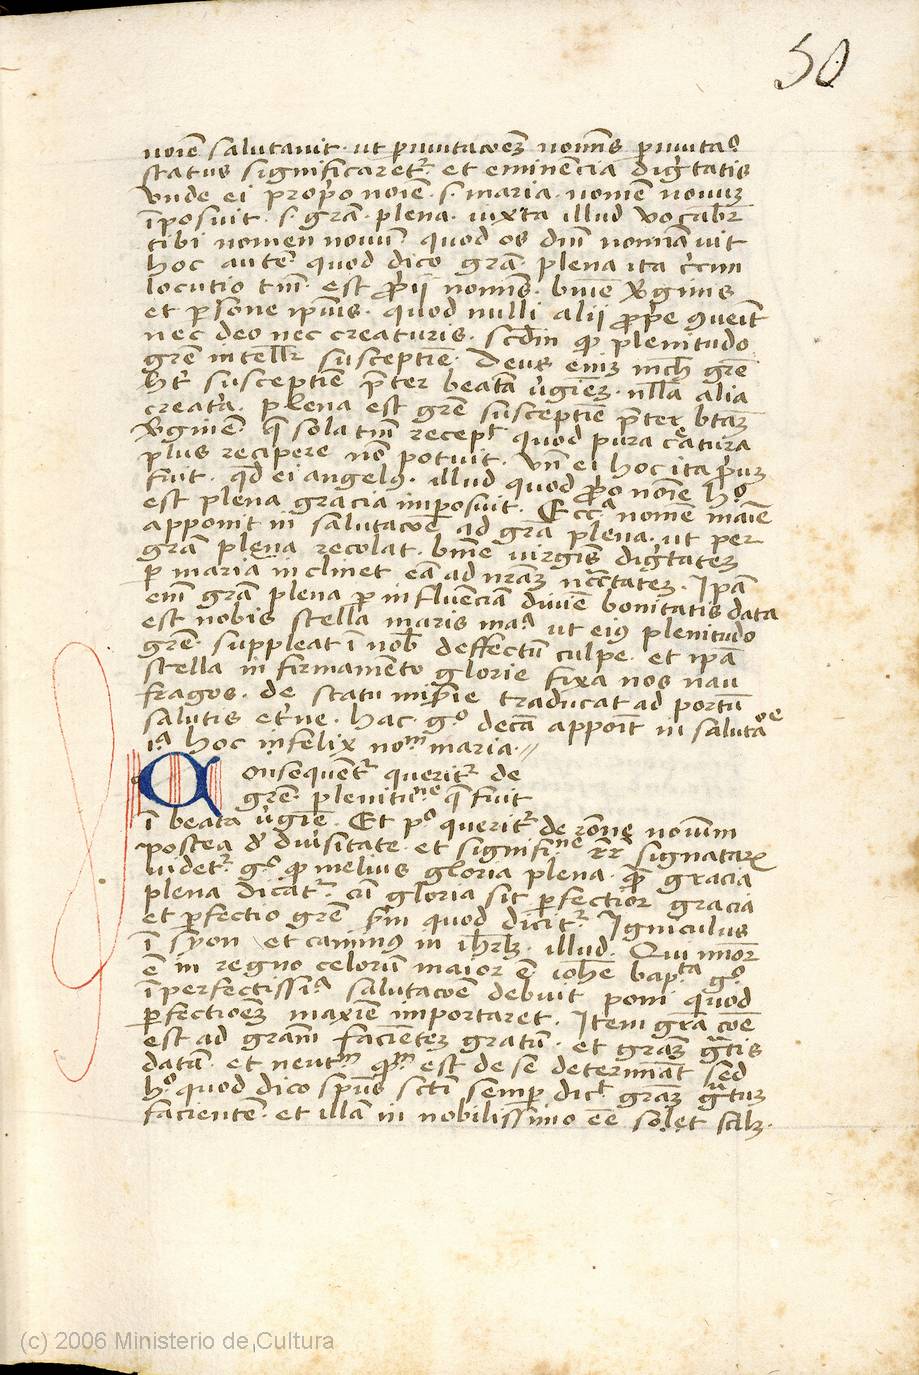 50
noīe salutauit · ut ꝑmutac̄oeꝫ nom̄is ꝑmutaᵒ
status significaretᷣ · et eminēcia dig̓tatis
vnde ei prop̓o noīe · s · maria · nomē nouuꝫ
īposuit · s · grā · plena · iuxta illud vocabr̄
tibi nomen nouū · quod os dn̄i nomīauit
hoc autē quod dico grā · plena ita
locutio tm̄ · est ꝓp̄ij nom̄is · bm̄e v̓gīnis
et ꝑsone ip̄iꝰs · quod nulli alij ꝓpr̄e ꝯueīt
nec deo nec creaturis · scd̄m ꝙ plenitudo
grē intellr̄ susceptiē · Deus enīꝫ grē
hr̄ susceptiē p̄ter beatā v̓giēꝫ · nll̄a alia
creat̓a · plena est grē susceptiē p̄ter btāꝫ
v̓ginē · q̄ sola tm̄ recepᵗ quod pura cᵉatura
plus recipere nō potuit · vn̄ ei hoc ita ꝓ̄uꝫ
fuit · qd̄ ei angelꝰ · illud quod ꝓ̄o noīe hᵒ
est plena gracia imposuit · Eccᵃ nomē maīe
apponit in salutac̄oē ad grā plena · ut per
grā plena recolat · bm̄e virgis̄ dig̓tateꝫ
ꝑ maria inclinet eā ad nrāꝫ · Ip̄am
enī grā plena ꝑ influēciā diuīe bonitatis data
est nobis stella maris maᵃ ut eiꝰ plenitudo
grē · suppleat ī nob̄ deffectū culpe · et ip̄a
stella in firmamēto glorie fixa nos nau
fragos · de statu miserie traducat ad portū
salutis et̓ne · hac · gᵒ decā apponīt in salutaᵒᵉ
hoc infelix noᵐ maria ·//
Consequent̄ᷣ queritᷣ de
grē · plenituⁿᵉ q̄ fuit
ī beata v̓gīe · Et pᵒ queritᷣ de rōne nouum
postea d̓ diu̓sitate · et signifiⁿᵉ signataꝝ
videtᷣ · gᵒ ꝙ melius gloria plena · ꝙ̄ gracia
plena dicatᷣ · cū gloria sit ꝑfectior gracia
et ꝑfectio grē s̄m quod dicitᷣ · Igniculus
ī syon et caminꝰ in ihr̄lꝫ · illud · Qui mīor
ē in regno celorū maior ē ioh̄e bapᵗᵃ gᵒ ·
īperfectissīᵃ salutac̄oē debuit poni quod
ꝑfectioēꝫ maxīe importaret · Item grā cōē
est ad grām facienteꝫ gratū · et grāꝫ gᵃtis
datā · et neutᵐ est de se determīāt sed
hᵒ quod dico spūs sctī semp dicᵗ grāꝫ gᵃtuꝫ
facientē · et illā in nobilissimo eē solet scilꝫ ·
(c) 2006 Ministerio de Cultura